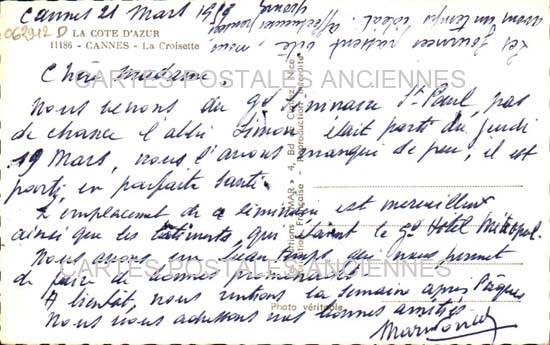 Cannes 21 Mars 1959
062912 D LA COTE D'AZUR
11186 - CANNES - La Croisette
Les journées passent vite, nous
avons un temps idéal. Affectueuses pensées
CARTES POSTALES ANCIENNES
Chère Madame,
Nous venons du gd Séminaire St Paul, pas
de chance l'abbé Simon était parti du jeudi
19 Mars, nous l'avons manqué de peu, il est
parti en parfaite santé.
L'emplacement de ce séminaire est merveilleux
ainsi que les bâtiments, qui étaient le gd Hôtel Métropol.
Nous avons un beau temps qui nous permet
de faire de bonnes promenades.
CARTES POSTALES ANCIENNES
A bientôt, nous rentrons la semaine après Pâques
Nous vous adressons nos bonnes amitiés
Photo véritable
Editions "MAR" 4, Bd Nice
Française - Reproduction interdite